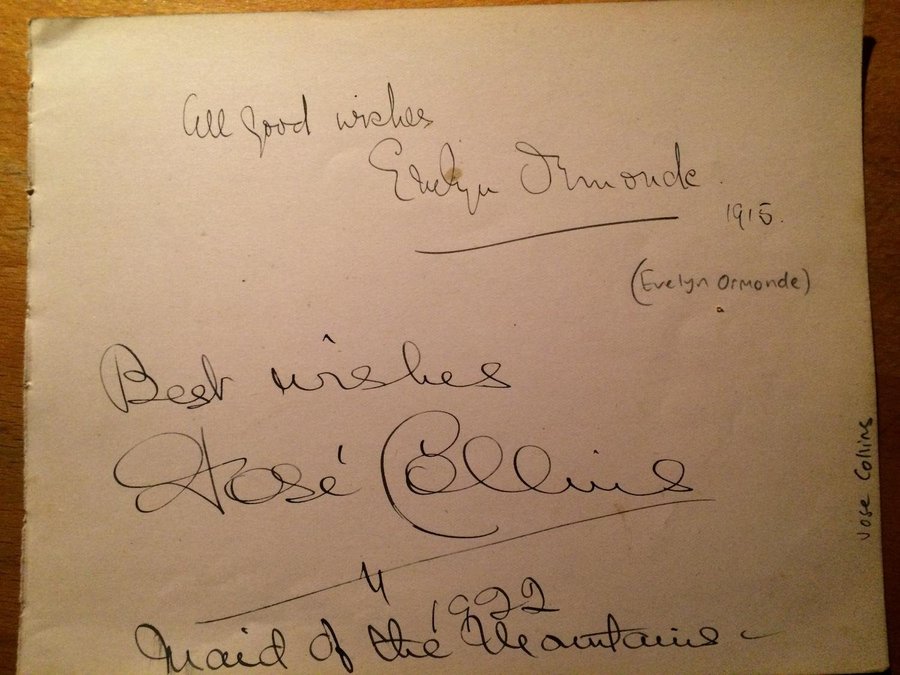 All good wishes
Evelyn Ormonde.
1915.
(Evelyn Ormonde)
Best wishes
José Collins
1922
Maid of the Mountains -
Jose Collins